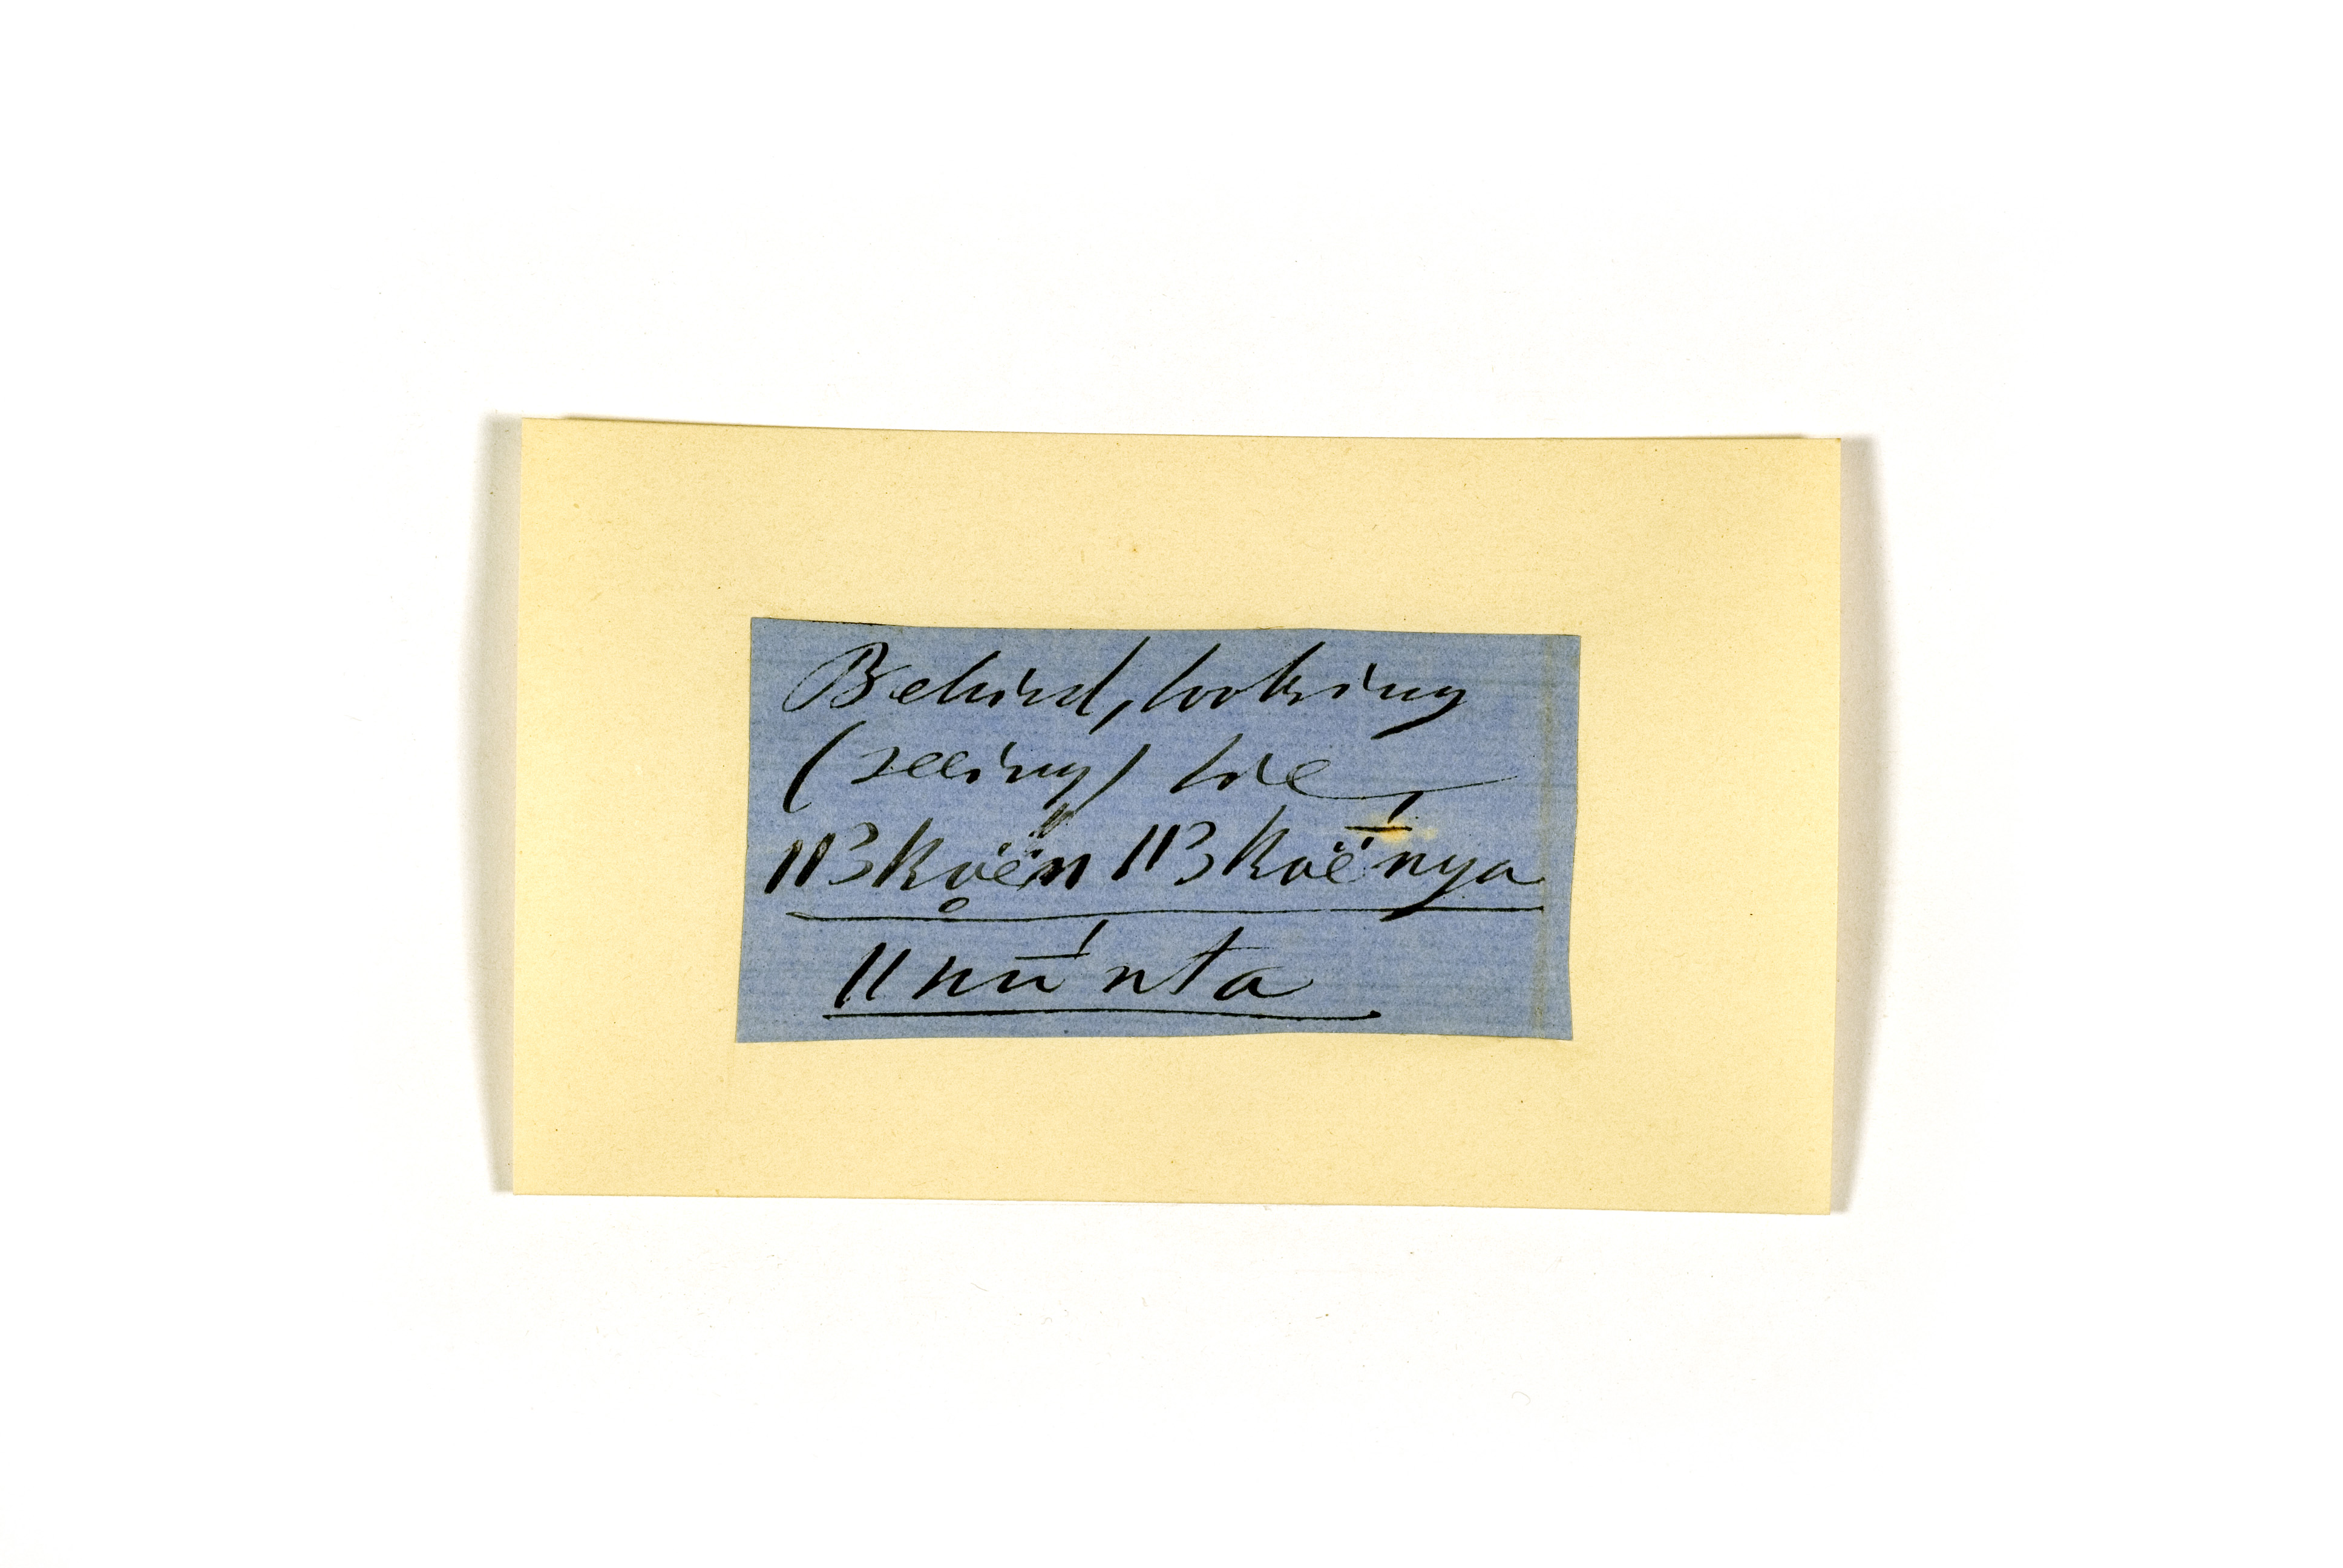 Behind, looking
(seeing) lie
||3ko̥ën ||3koë́̄nya
||nū́nta